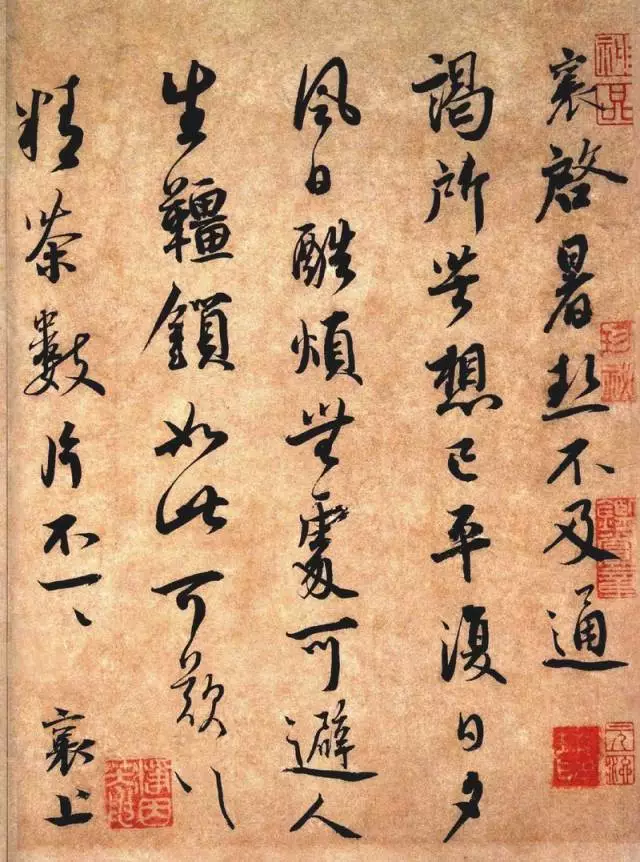 襄啓暑热不及通
謁所苦想已平復日夕
風日酷煩無處可避人
生韁鎖如此可歎以
精茶數片不一一
襄上